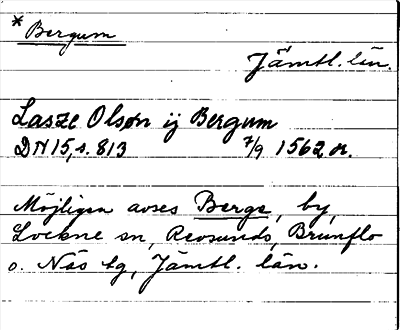 * Bergum
Jämtl. län.
Lasze Olsøn ij Bergum
DN 15, s. 813 7/9 1562 or.
Möjligen avses Berge, by,
Lockne sn, Revsunds, Brunflo
o. Näs tg, Jämtl. län.